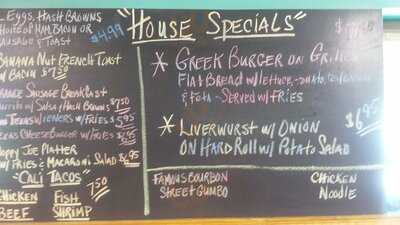 Eggs, Hash Browns
Choice of Ham, Bacon or
Sausage & Toast $4.99
Banana Nut French Toast
w/ Bacon $7.50
Sausage Breakfast
w/ Salsa & Hash Browns $7.50
Texas Wieners w/ Fries $5.95
Texas Cheeseburger w/ Fries $6.95
Happy Joe Platter
w/ Fries & Macaroni Salad $6.95
"Cali Tacos"
Chicken Fish 7.50
Beef Shrimp
"House Specials"
* Greek Burger on Grilled
Flat Bread w/ Lettuce,
& Feta - Served w/ Fries
* Liverwurst w/ Onion $6.95
on Hard Roll w/ Potato Salad
Famous Bourbon
Street Gumbo
Chicken
Noodle